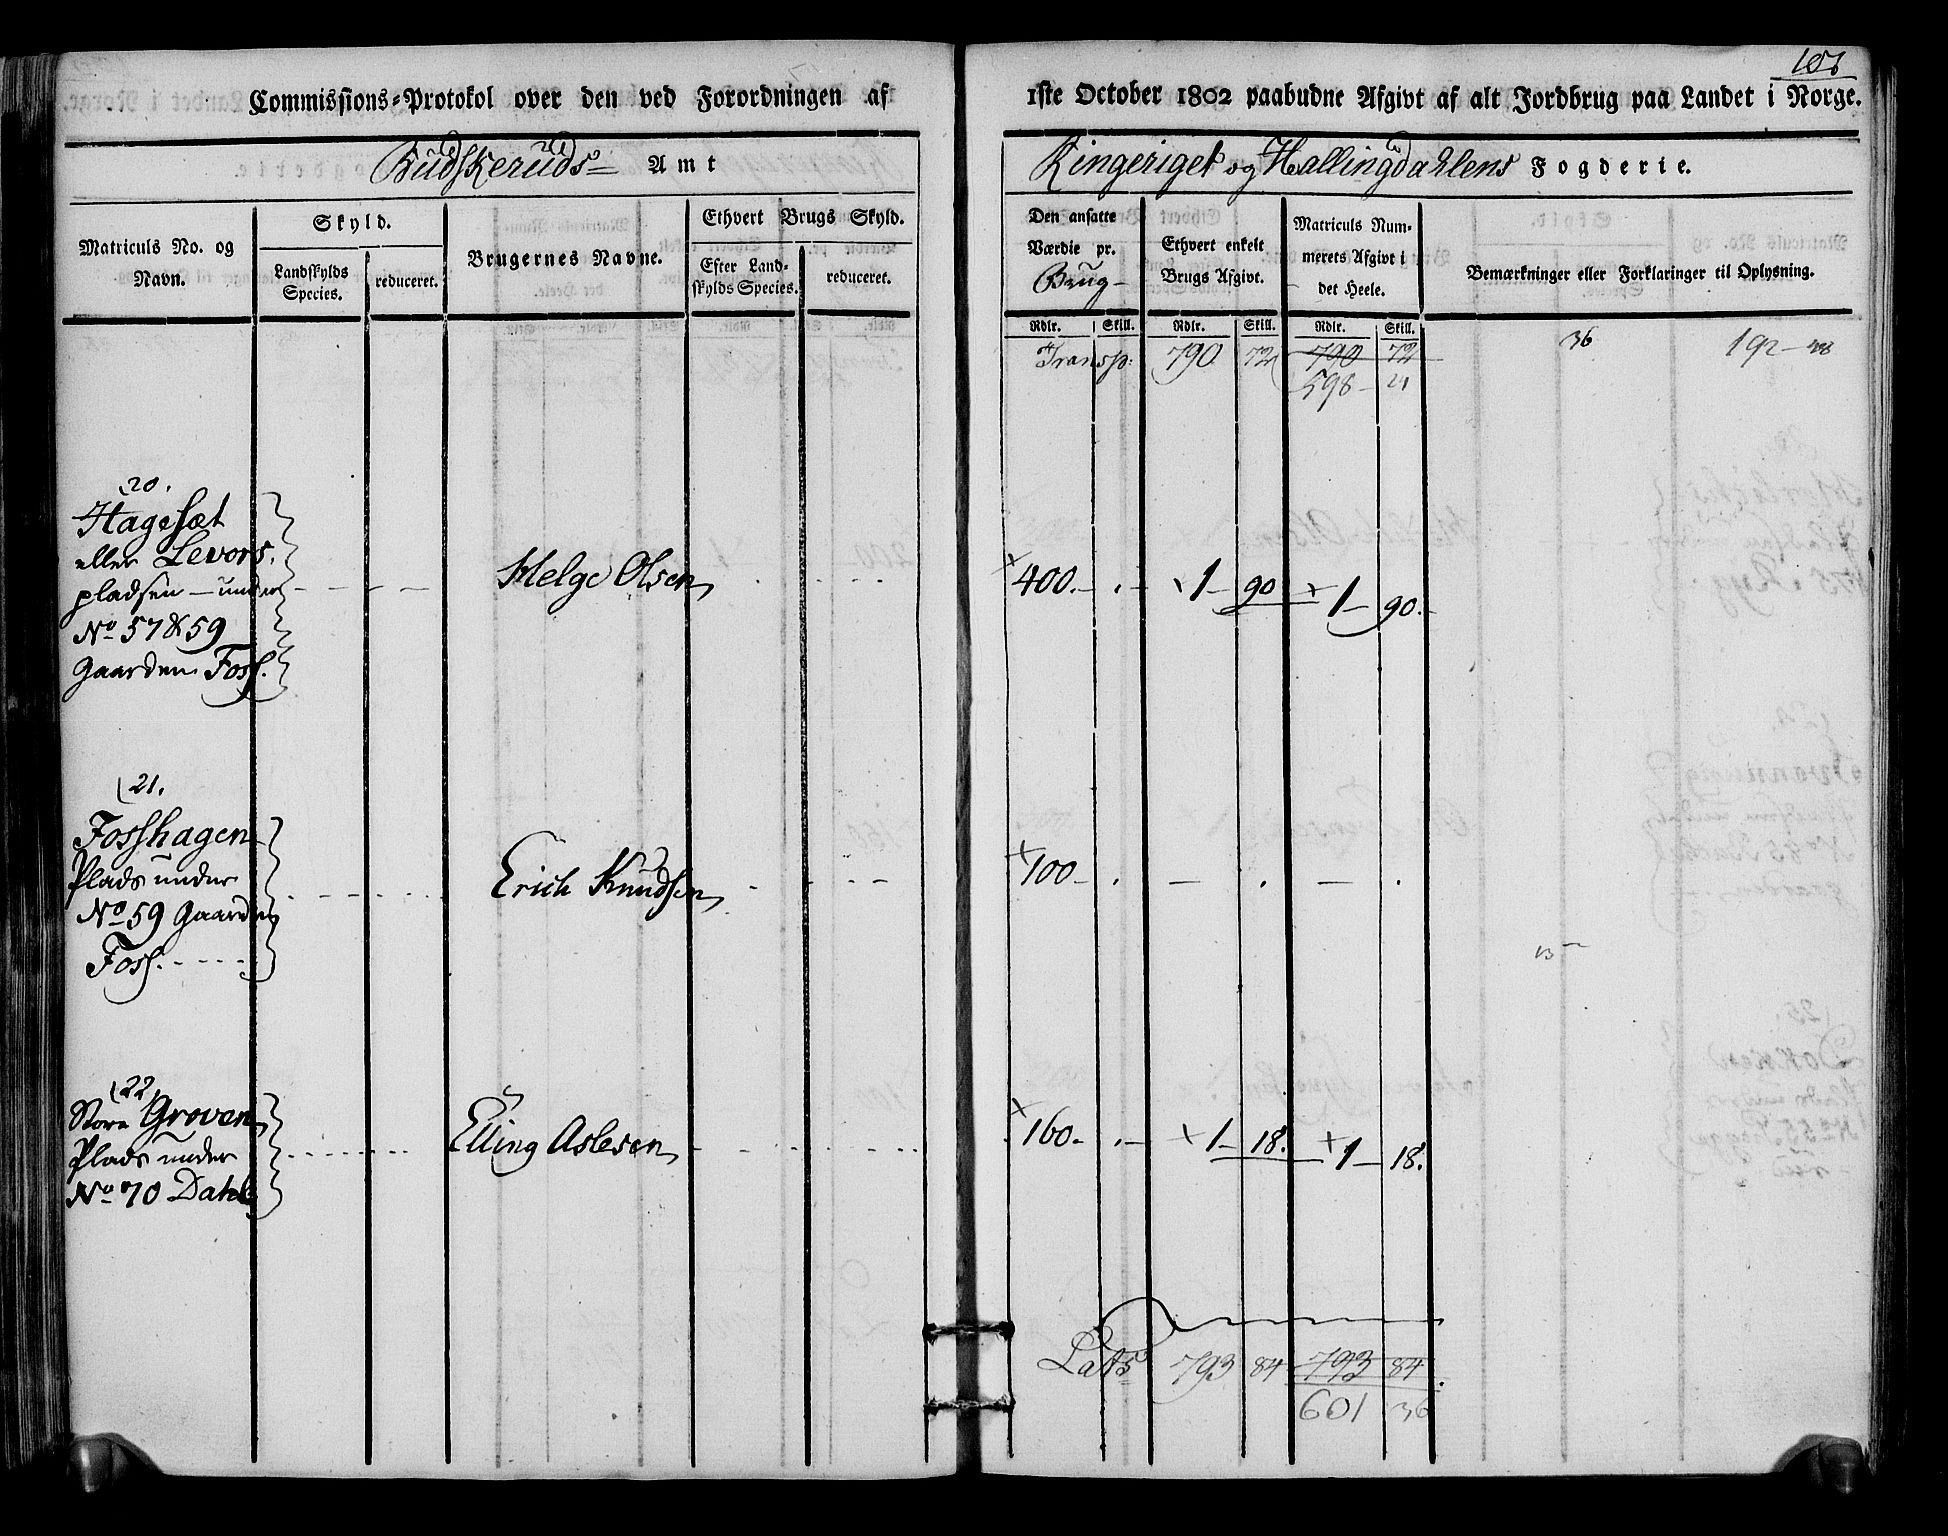 Commissions=Protokol over den ved Forordningen af
Budskeruds= Amt
Matriculs No. og Navn.
Skyld.
Landskylds Species.
reduceret.
Brugernes Navne.
Ethvert Brugs Skyld.
Efter Landskylds Species.
reduceret.
20.
Hagesæt
eller Levors,
pladsen — under
No 57 & 59
Gaarden Foss.
Helge Olsen
21.
Fosshagen
Plads under
No 59 Gaarden
Foss.
Erich Knudsen
22
Store Groven
Plads under
No 70 Dahle
Elling Aslesen
1ste October 1802 paabudne Afgivt af alt Jordbrug paa Landet i Norge.
Ringeriget og Hallingdahlens Fogderie.
Den ansatte
Værdie pr.
Brug
Ethvert enkelt
Brugs Afgivt.
Matriculs Num-
merets Afgivt i
det Heele.
Bemærkninger eller Forklaringer til Oplysning.
Rdlr. Skill. Rdlr. Skill. Rdlr. Skill.
Transp: 790 72 790 72 36 192 – 48
598 – 24
400. – . – 1 – 90 1 – 90.
100 – . – . – .
160. – . – 1 – 18. 1 – 18.
Lats 793 84 793 84
601 36